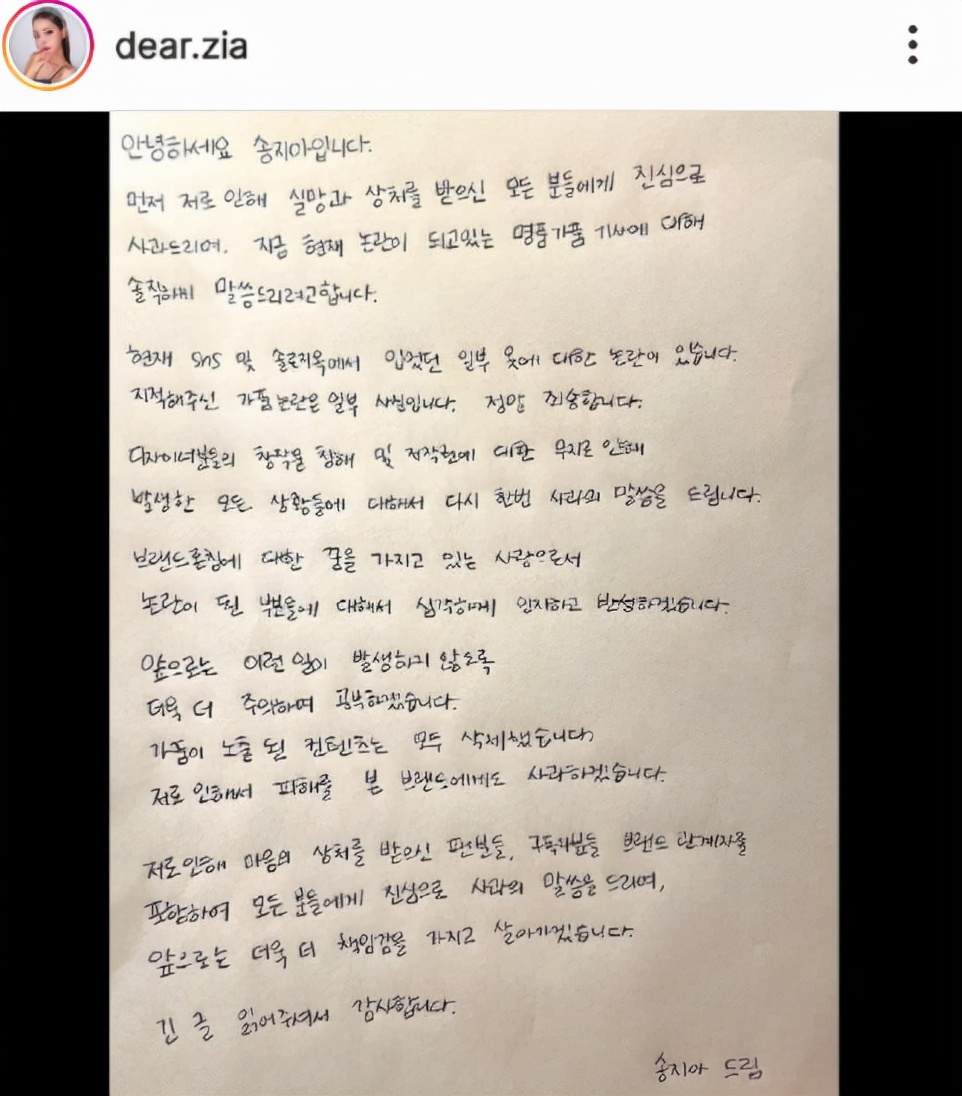 dear.zia
안녕하세요 송지아입니다.
먼저 저로 인해 실망과 상처를 받으신 모든 분들에게 진심으로
사과드리며, 지금 현재 논란이 되고있는 명품가품 기사에 대해
솔직하게 말씀드리려고합니다.
현재 SNS 및 솔로지옥에서 입었던 일부 옷에 대한 논란이 있습니다.
지적해주신 가품논란은 일부 사실입니다. 정말 죄송합니다.
디자이너분들의 창작물 침해 및 저작권에 대한 무지로 인해
발생한 모든 상황들에 대해서 다시 한번 사과의 말씀을 드립니다.
브랜드론칭에 대한 꿈을 가지고 있는 사람으로서
논란이 된 부분들에 대해서 심각하게 인지하고 반성하겠습니다.
앞으로는 이런 일이 발생하지 않도록
더욱 더 주의하며 공부하겠습니다.
가품이 노출 된 컨텐츠는 모두 삭제했습니다
저로 인해서 피해를 본 브랜드에게도 사과하겠습니다.
저로인해 마음의 상처를 받으신 팬분들, 구독자분들 브랜드 관계자를
포함하여 모든 분들에게 진심으로 사과의 말씀을 드리며,
앞으로는 더욱 더 책임감을 가지고 살아가겠습니다.
긴 글 읽어주셔서 감사합니다.
송지아 드림